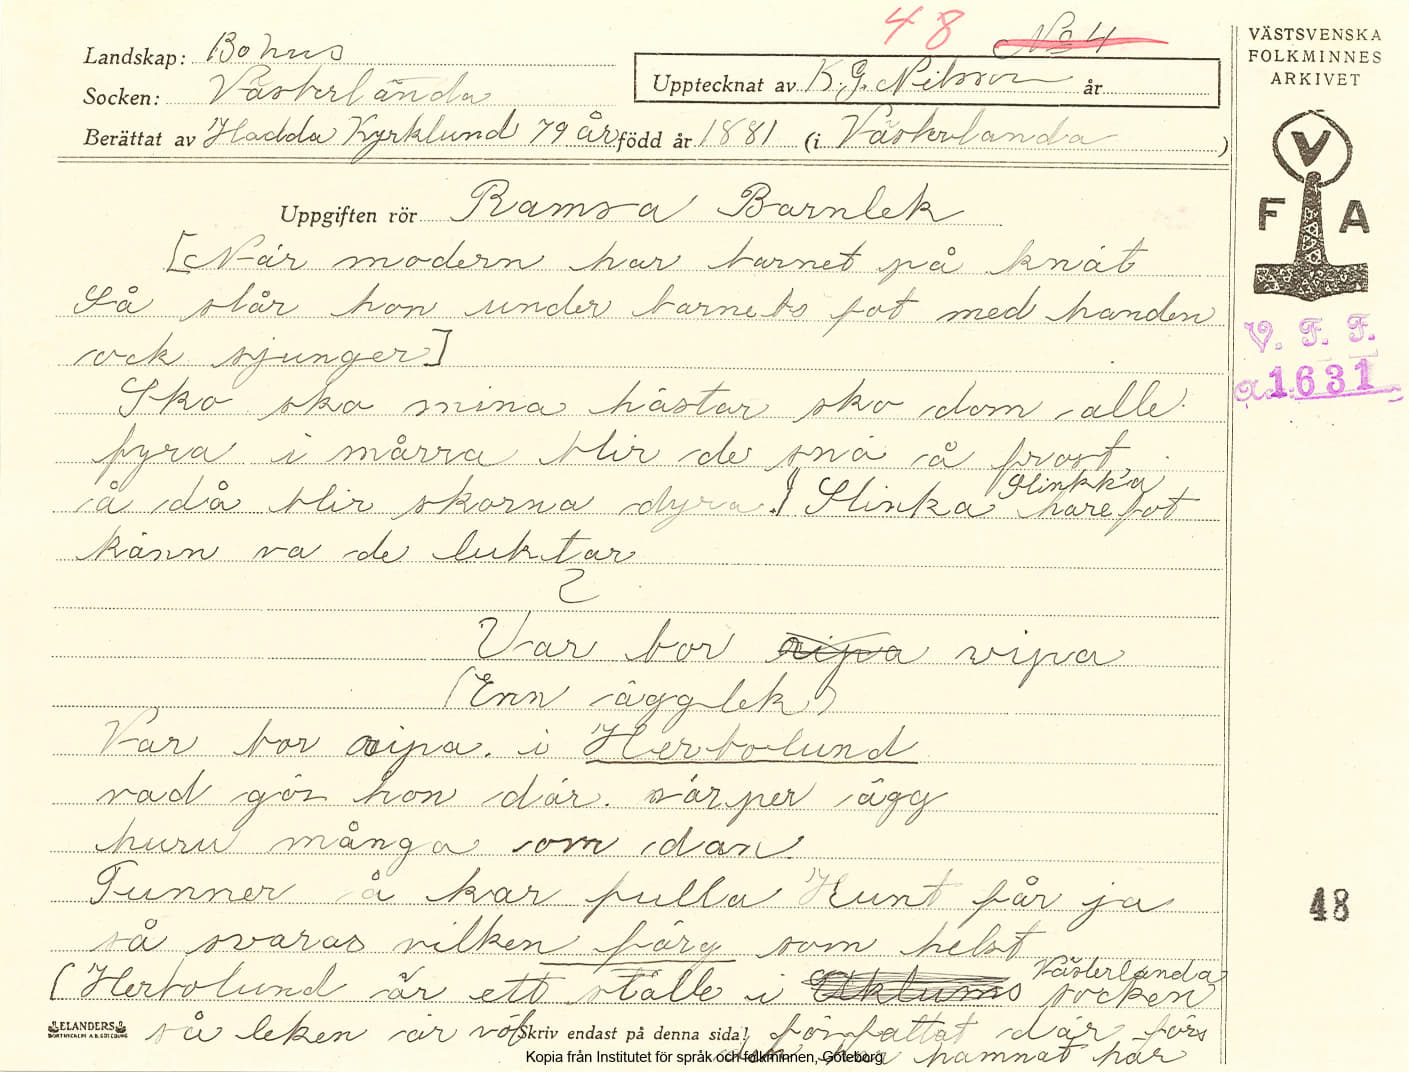 48 No 4
Landskap: Bohus
Socken: Västerlanda
Upptecknat av K. G. Nilsson år
Berättat av Hadda Kyrklund 79 år född år 1881 (i Västerlanda )
VÄSTSVENSKA
FOLKMINNES
ARKIVET
V
F A
V. F. F.
a. 1631
Uppgiften rör Ramsa Barnlek
[När modern har barnet på knät
Så slår hon under barnets fot med handen
ock sjunger]
Sko sko mina hästar sko dom alle
fyra i mårra blir de snö å frost
å då blir skorna dyra. Slinka slinkka harefot
känn va de luktar
2
Var bor vipa
(Enn ägglek)
Var bor vipa. i Herbolund
vad gör hon där. värper ägg
huru många om dan.
Tunner å kar fulla Hunt får ja
så svaras vilken färg som helst
(Herbolund är ett ställe i Västerlanda socken
48
så leken är författat där förs
hamnat här
ELANDERS
BOKTRYCKERI A.B. GÖTEBORG
Skriv endast på denna sida!
Kopia från Institutet för språk och folkminnen, Göteborg